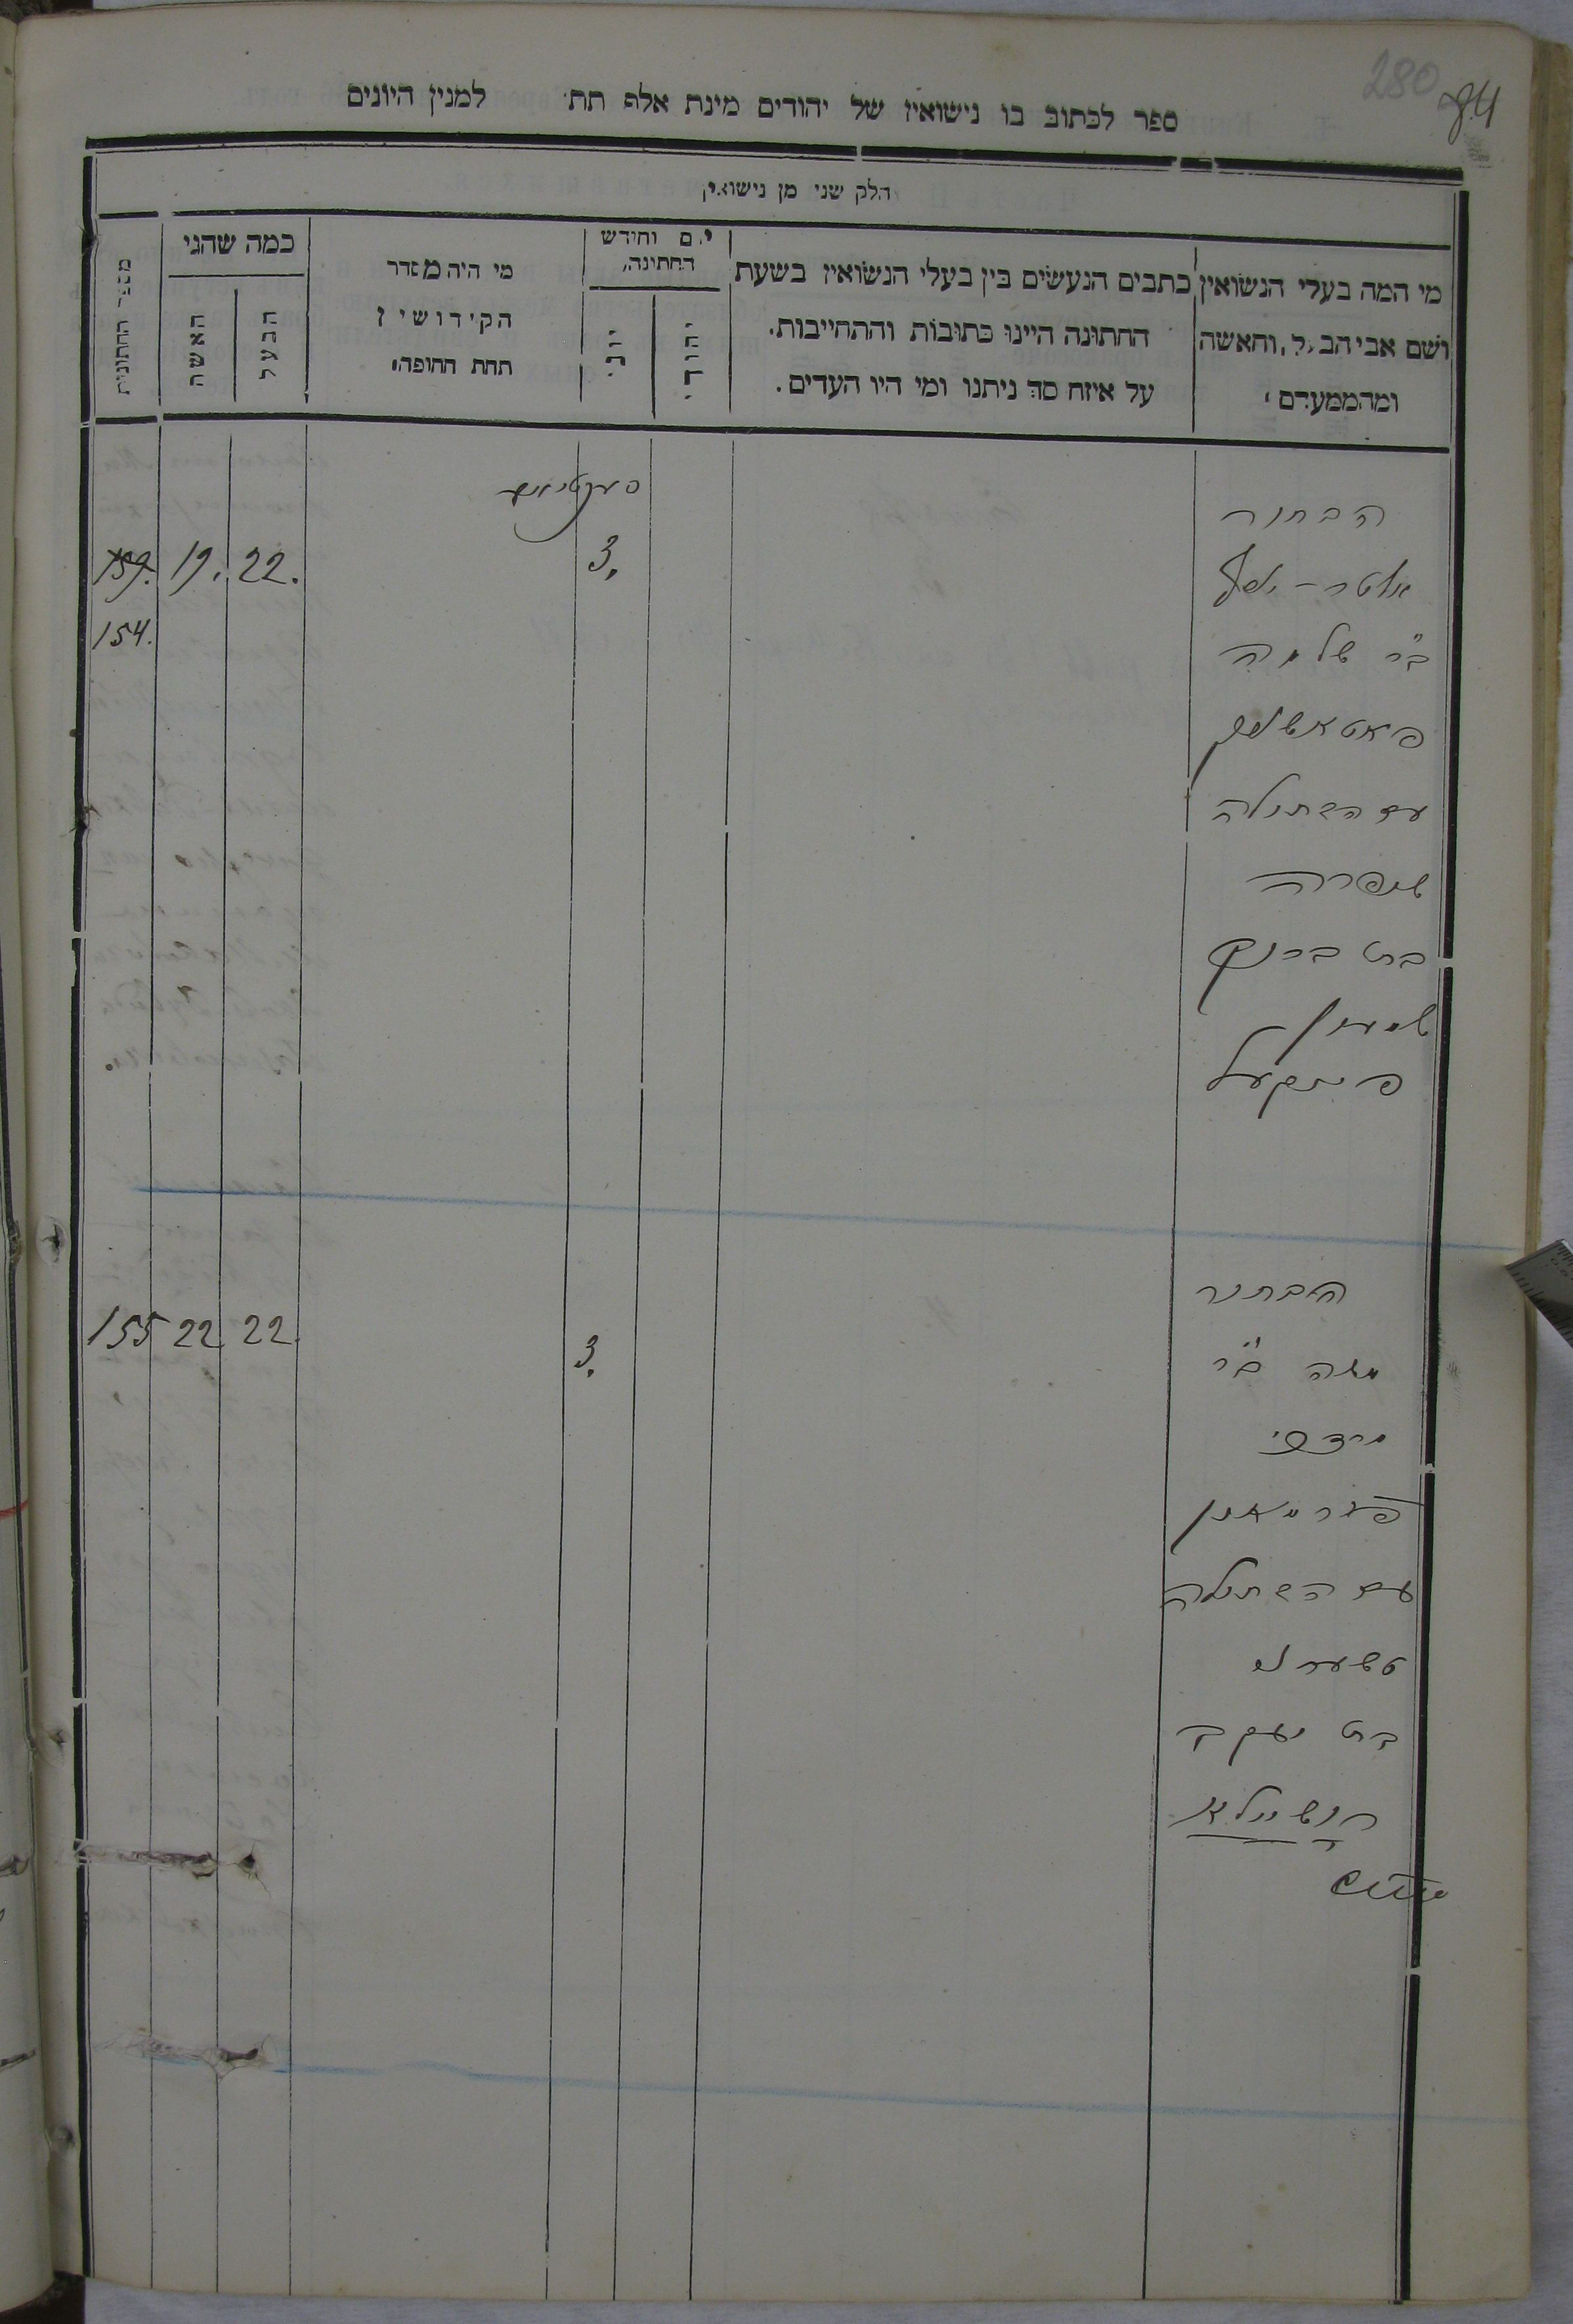 280
84
ספר לכתוב בו נישואין של יהודים מינת אלף תת׳ למנין היונים
חלק שני מן נישואין
מי המה בעלי הנשואין
ושם אבי הבעל, והאשה
ומהמעמדם
כתבים הנעשים בין בעלי הנשואין בשעת
החתונה היינו כתובות והתחייבות.
על איזה סך ניתנו ומי היו העדים.
יום וחודש
החתונה
יהודי
יוני
מי היה מסדר
הקידושין
תחת החופה
כמה שהגי
הבעל
האשה
מספר החתונות
הבחור
אלטר - יוסף
ב"ר שלמה
עם הבתולה
שפרה
בת ברוך
שמעון
3.
22.
19.
159.
154.
הבחור
משה ב"ר
מרדכי
פורמאן
עם הבתולה
טשערנא
בת יעקב
3.
22.
22
155